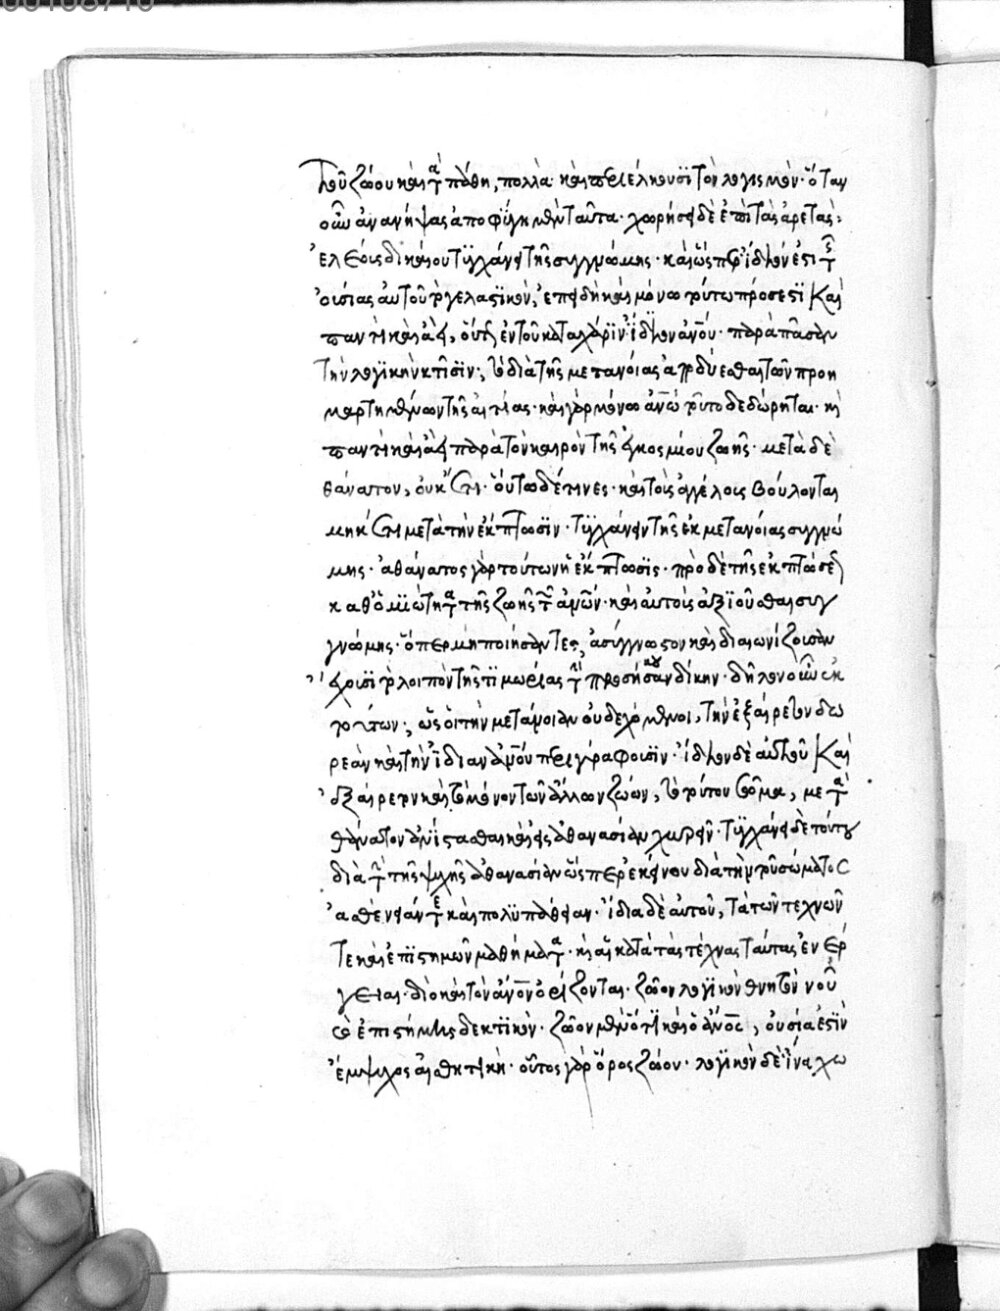 τοῦ ζώου καὶ τὰ πάθη, πολλὰ καὶ περιέλκουσι τὸν λογισμόν· ὅταν
οὖν ἀνανήψας ἀποφύγῃ μὲν ταῦτα· χωρήσῃ δὲ ἐπὶ τὰς ἀρετὰς·
ἐλέους δικαίου τυγχάνει τῆς συγγνώμης· καὶ ὥσπερ ἴδιόν ἐστι τῆς
οὐσίας αὐτοῦ τὸ γελαστικὸν, ἐπειδὴ καὶ μόνω τούτω πρόσεστι καὶ
παντὶ καὶ ἀεὶ, οὕτως ἐν τοῖς κατὰ χάριν ἴδιον ἀνου· παρὰ πᾶσαν
τὴν λογικὴν κτίσιν, τὸ διὰ τῆς μετανοίας ἀπολύεσθαι τῶν προη
μαρτημένων τῆς αἰτίας· καὶ γὰρ μόνω ἀνω τοῦτο δεδώρηται· καὶ
παντὶ καὶ ἀεὶ παρὰ τὸν καιρὸν τῆς ἐγκοσμίου ζωῆς· μετὰ δὲ
θάνατον, οὐκ ἔτι· οὕτω δέ τινες· καὶ τοὺς ἀγγέλους βούλονται
μηκέτι μετὰ τὴν ἔκπτωσιν· τυγχάνειν τῆς ἐκ μετανοίας συγγνώ
μης· ἀθάνατος γὰρ τούτων ἡ ἔκπτωσις· πρὸ δὲ τῆς ἐκπτώσεως
καθ' ὁμοιότητα τῆς ζωῆς τῶν ἀνων· καὶ αὐτοὺς ἀξιοῦσθαι συγ
γνώμης· ὅπερ μὴ ποιήσαντες, ἀσύγγνωστον καὶ διαιωνίζουσαν
ἔχουσι τὸ λοιπὸν τῆς τιμωρίας τὴν προσήκουσαν δίκην· δῆλον οὖν ἐκ
τούτων, ὡς οἱ τὴν μετάνοιαν οὐ δεχόμενοι, τὴν ἐξαίρετον δω
ρεὰν καὶ τὴν ἰδίαν ἀνου περιγράφουσιν· ἴδιον δὲ αὐτοῦ καὶ
ἐξαίρετον καὶ τὸ μόνον τῶν ἄλλων ζώων, τὸ τούτου σῶμα, μετὰ
θάνατον ἀνίστασθαι καὶ εἰς ἀθανασίαν χωρεῖν· τυγχάνει δὲ τούτου
διὰ τὴν τῆς ψυχῆς ἀθανασίαν ὥσπερ ἐκείνου διὰ τὴν τοῦ σώματος
ἀσθένειάν τε καὶ πολυπάθειαν· ἴδια δὲ αὐτοῦ, τὰ τῶν τεχνῶν
τε καὶ ἐπιστημῶν μαθήματα· καὶ αἱ κατὰ τὰς τέχνας ταύτας ἐνέρ
γειαι· διὸ καὶ τὸν ἀνον ὁρίζονται· ζῶον λογικὸν θνητὸν νοῦ
καὶ ἐπιστήμης δεκτικόν· ζῶον μὲν ὅτι καὶ ὁ ἀνος, οὐσία ἐστὶν
ἔμψυχος αἰσθητική· οὗτος γὰρ ὅρος ζώου· λογικὸν δὲ ἵνα χω